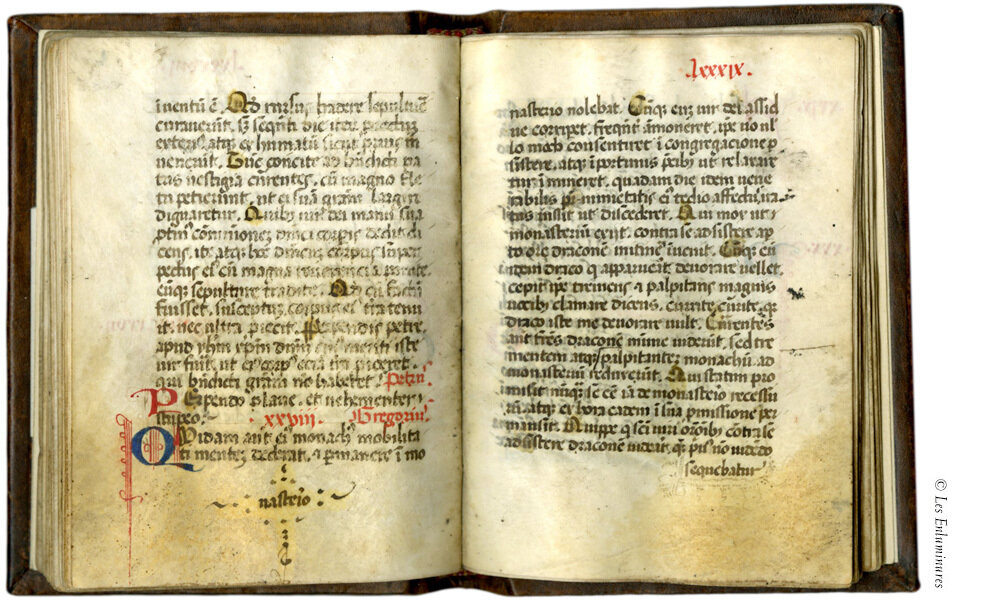 inventū ē. Qd rursus tradere sepulture
curaverūt, s; seqnti die iteȝ proiectuȝ
extensū, atqȝ ex humatū sicut prius in
venerūt. Tūc concite ad bndicti pa
tris vestigia currentes, cū magno fle
tu petierunt, ut ei suā grām largire
dignaretur. Quibȝ vir dei manu sua
ptin9 cōmunionez dnici corpis dedit di
cens, ite atqȝ hoc dnicuȝ corpus super
pectus eī cū magna reverencia ponite
eumqȝ sepulture tradite. Qd cū factū
fuisset, susceptuȝ corpus eī terra tenu
it, nec ultra proiecit. Perpendis petre,
apud yhm xpm dnm cui9 meriti iste
vir fuit, ut ei9 corp9 eciā terra piceret,
qui bndicti grām nō haberet. Petrus
Perpendo plane, et vehementer
stupeo. xxviii. Gregorius
Quidam aut ei9 monach9 mobilita
ti mentez dederat, et permanere ī mo
nasterio
lxxxix.
nasterio nolebat. Cūqȝ eum vir dei assid
ue corriperet, frequēt admoneret, ipe vo nul
lo modo consentiret ī congregacione p
sistere, atqȝ īportunis pcibȝ ut relaxare
tur īmineret, quadam die idem vene
rabilis pr nimietatis ei9 tedio affectus, ira
tus iussit ut discederet. Qui mox ut
monasterium exiit, contra se adsistere ap
to ore draconē in itinere īvenit. Cūqȝ eū
idem draco q apparuerat devorare vellet,
cepit ipe tremens et palpitans magnis
vocibȝ clamare dicens, currite, currite, qȝ
draco iste me devorare vult. Currentes
aut frēs draconē minime viderūt, sed tre
mentem atqȝ palpitantez monachū ad
monasteriū reduxerūt. Qui statim pro
misit nūqȝ se eē iā de monasterio recessu
rū, atqȝ ex hora eadem ī sua pmissione per
mansit. Quippe q sci viri orōibȝ contra se
adsistere draconē viderat, quē pius nō videndo
sequebatur
© Les Enluminures